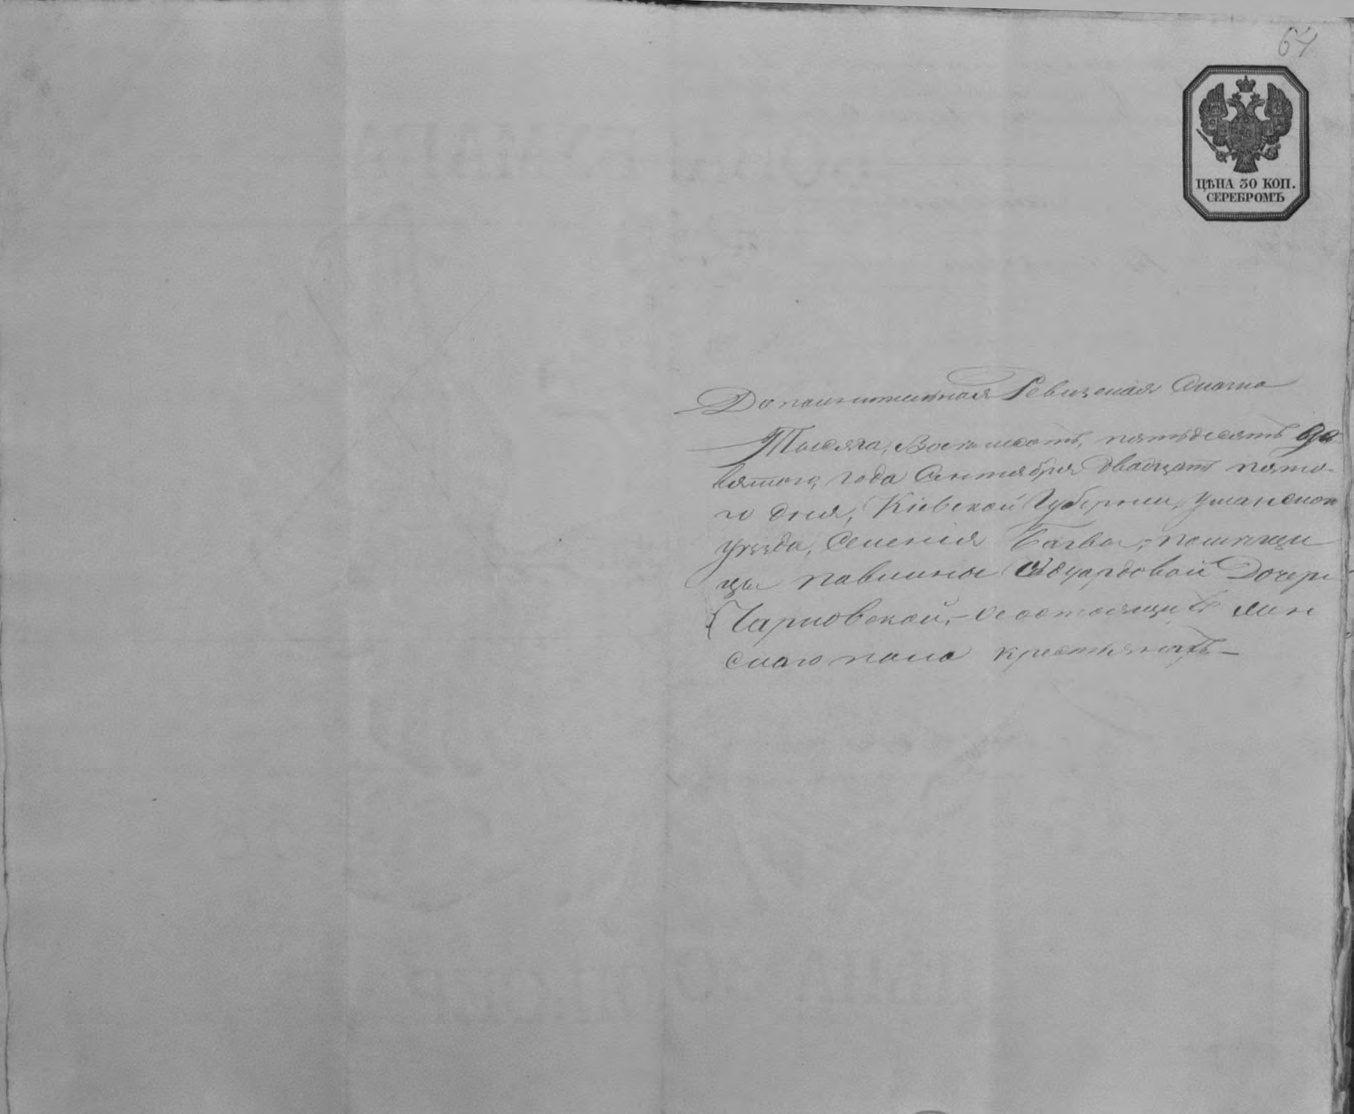 64
ЦѢНА 30 КОП.
СЕРЕБРОМЪ
Дополнительная Ревизская Сказка
Тысяча, Восемьсотъ, пятьдесятъ де
вятаго года Сентября двадцать пято-
го дня, Кіевской Губерніи, Уманскаго
уѣзда, Селенія Багвы, помѣщи
цы Павлины Эдуардовой Дочери
Чарновской, – о состоящихъ жен
скаго пола крестьянахъ –